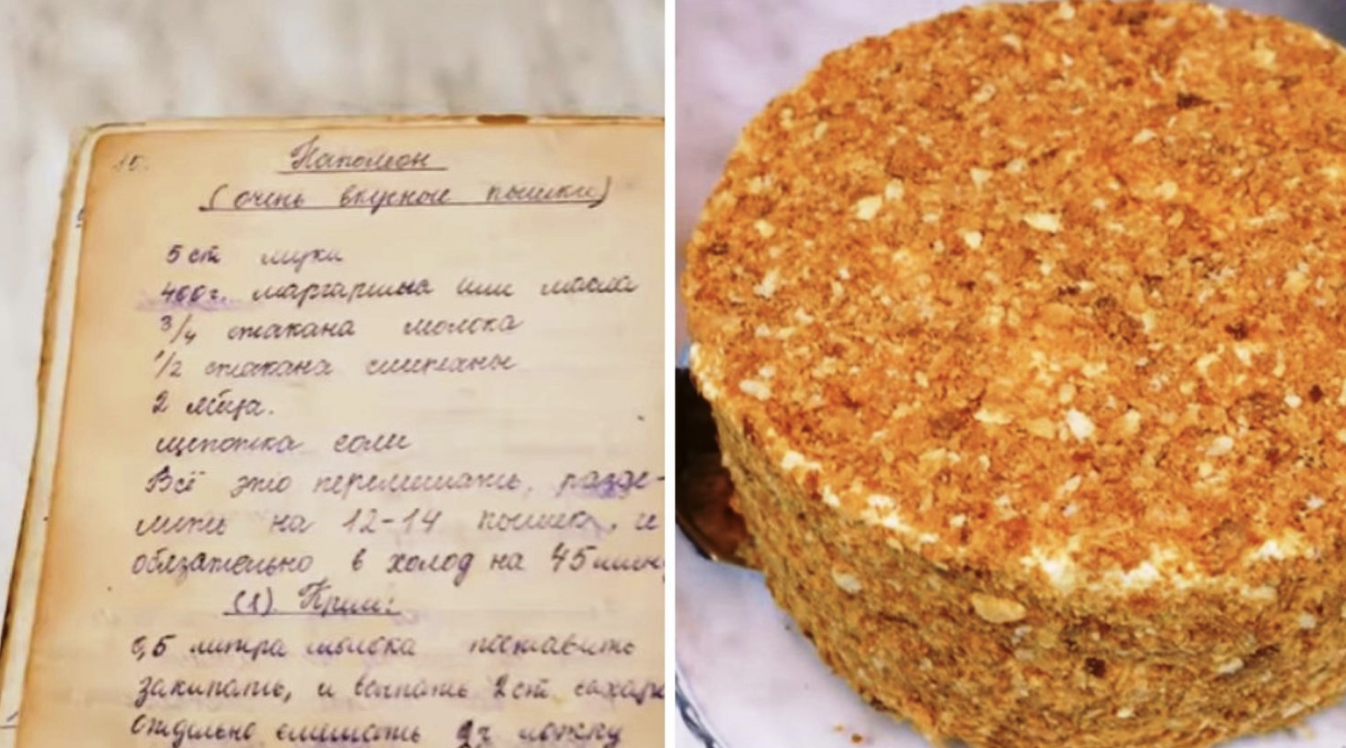 15.
Наполеон
(очень вкусные пышки)
5 ст муки
400 г. маргарина или масла
3/4 стакана молока
1/2 стакана сметаны
2 яйца.
щепотка соли
Всё это перемешать, разде-
лить на 12-14 пышек, и
обязательно в холод на 45 мин
(1) Крем:
0,5 литра молока поставить
закипать, и всыпать 2 ст сахара
Отдельно смешать 2 ложку